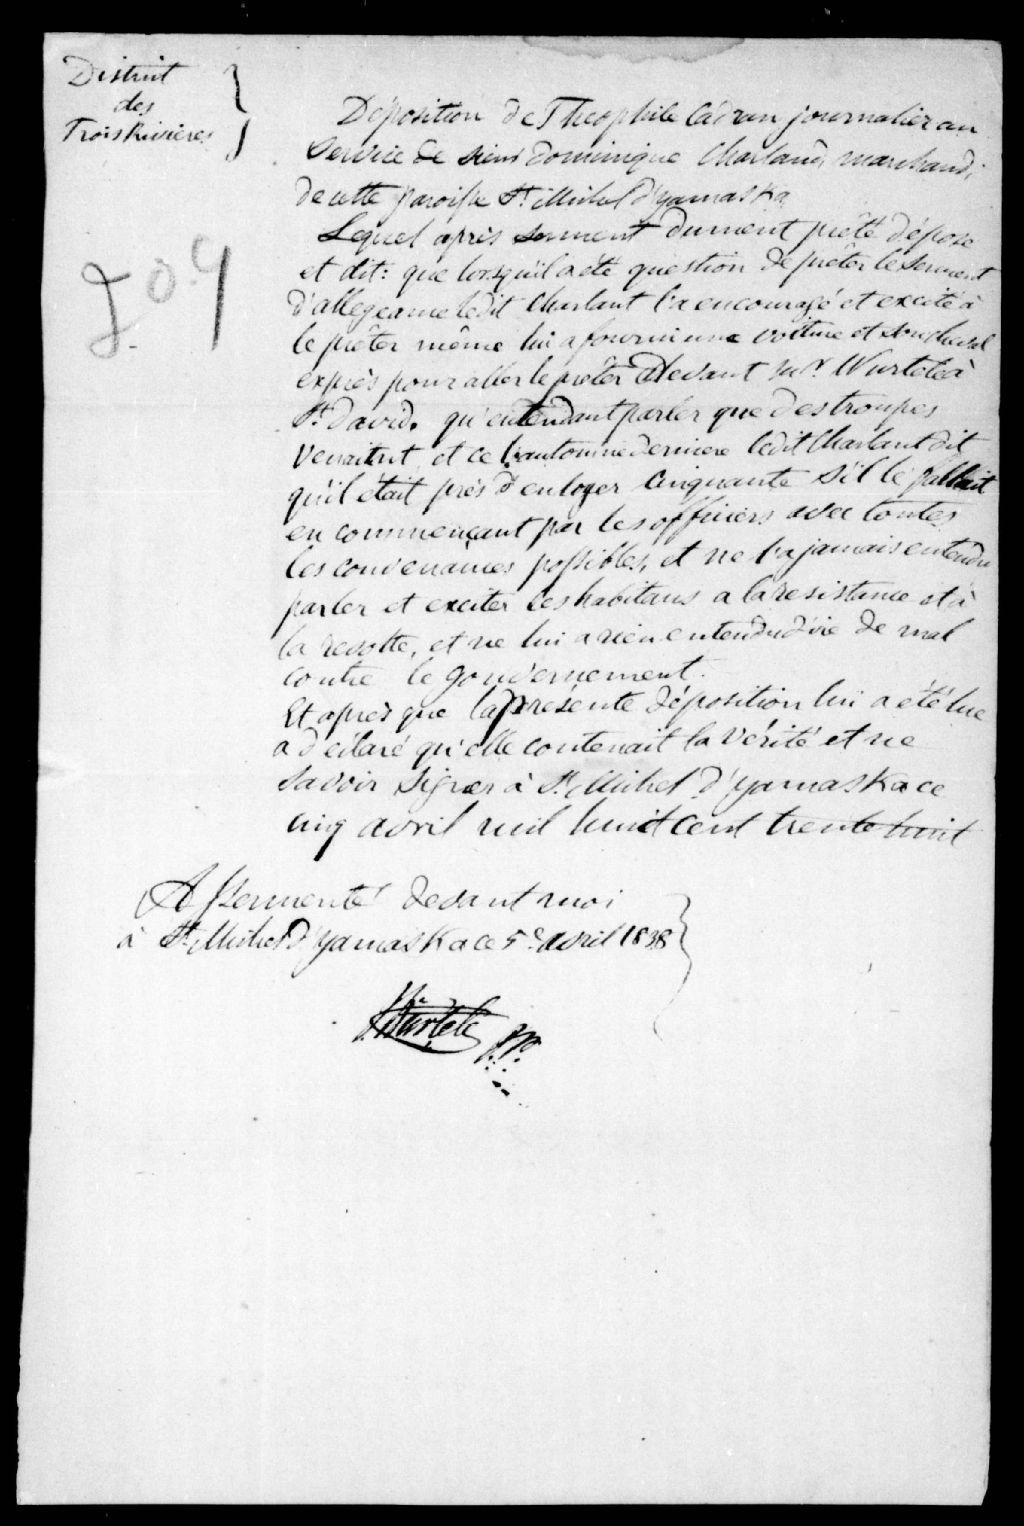 District
des
Trois Rivières
Déposition de Theophile Cadran journalier au
Service de sieur Dominique Charland, marchand,
de cette paroisse St. Michel d'yamaska
Lequel après serment dument prêté dépose
et dit: que lorsqu'il a été question de prêter le serment
d'allegeance ledit Charlant l'a encouragé et excité à
le prêter même lui a fourni une voiture et son cheval
exprès pour aller le prêter devant Mr. Wurtele à
St. David. qu'entendant parler que des troupes
venaitent et ce l'automne derniere ledit Charlant dit
qu'il était près d'en loger Cinquante s'il le fallait
en commençant par les officiers avec toutes
les convenances possibles, et ne l'a jamais entendu
parler et exciter les habitans a la resistance et à
la revolte, et ne lui a rien entendu d'ire de mal
contre le gouvernement.
Et après que la présente déposition lui a été lue
a déclaré qu'elle contenait la vérité et ne
savoir signer à St. Michel d'yamaska ce
cinq avril mil huit cent trente huit
Assermenté devant moi
à St. Michel d'yamaska ce 5e. avril 1838
Wurtele